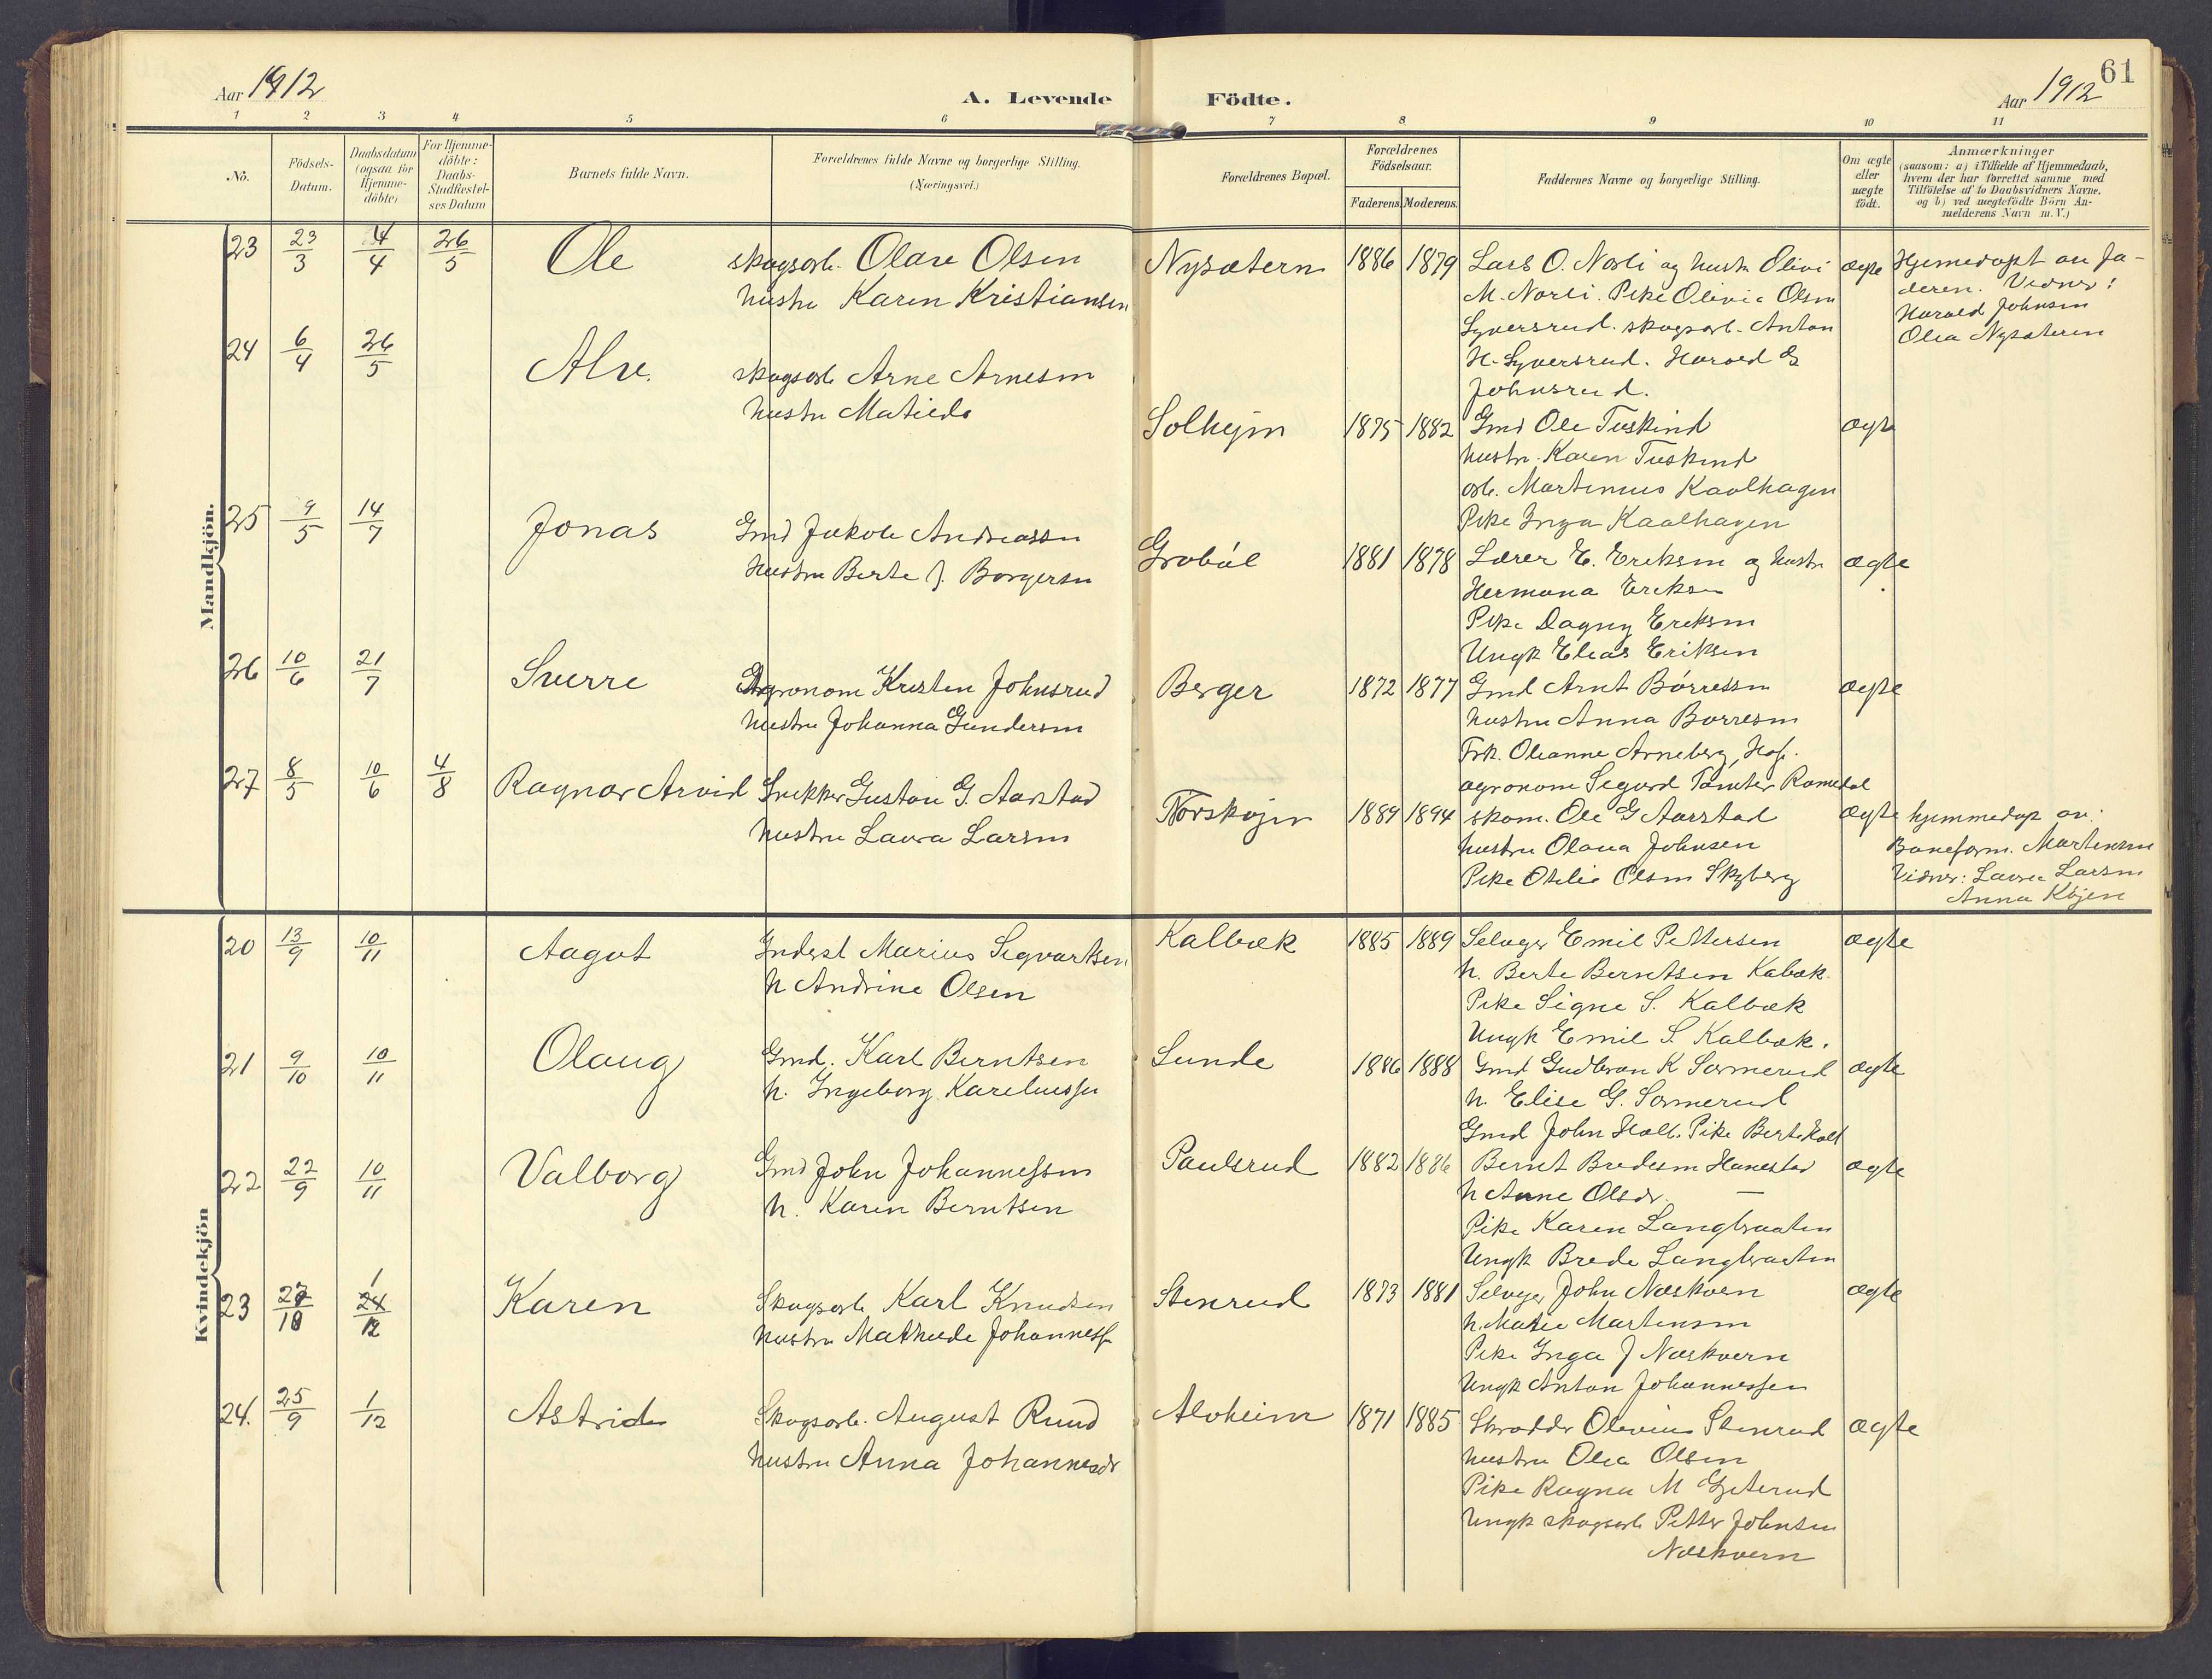 61
Aar 1912
A. Levende Födte.
Aar 1912
1 2 3 4 5 6 7 8 9 10 11
No.
Födsels-
Datum.
Daabsdatum
(ogsaa for
Hjemme-
döbte)
For Hjemme-
döbte:
Daabs-
Stadfæstel-
ses Datum
Barnets fulde Navn.
Forældrenes fulde Navne og borgerlige Stilling.
(Næringsvei.)
Forældrenes Bopæl.
Forældrenes
Födselsaar.
Faderens. Moderens.
Faddernes Navne og borgerlige Stilling.
Om ægte
eller
uægte
födt.
Anmærkninger
(saasom: a) i Tilfælde af Hjemmedaab,
hvem der har forrettet samme med
Tilföielse af to Daabsvidners Navne.
og b) ved uægtefödte Börn An-
melderens Navn m. V.)
Mandkjön.
23 23/3 4/4 26/5 Ole
skogsarb. Olare Olsen
hustru Karen Kristiansen
Nysætern 1886 1879
Lars O. Norli og hustr Olivi
M. Norli. Pike Olivia Olsen
Syversrud. skogsarb. Anton
H. Syversrud. Harald G
Johnsrud.
ægte
Hjemedøpt av fa-
deren. Vidner:
Harald Johnsen
Olea Nysæteren
24 6/4 26/5 Alv.
skogsarb Arne Arnesen
hustru Matilde
Solhejm 1875 1882
Gmd Ole Tuskind
hustr. Karen Tuskind
arb. Martinius Kaalhagen
Pike Inga Kaalhagen
ægte
25 9/5 14/7 Jonas
Gmd Jakob Andreassen
Hustru Berte J. Borgersen
Grøbøl 1881 1878
Lærer E. Eriksen og hustr
Hermana Eriksen
Pike Dagny Eriksen
Ungk Elias Eriksen
ægte
26 10/6 21/7 Sverre
Agronom Kristen Johnsrud
hustru Johanna Gundersen
Berger 1872 1877
Gmd Arnt Børressen
hustru Anna Borresen
Frk. Oleanne Arneberg, Hof.
agronom Sigurd Tomter Romedal
ægte
27 8/5 10/6 4/8 Ragnar Arvid
Snekker Gustav G. Aarstad
hustru Laura Larsen
Norskøjen 1889 1894
skom. Ole G Aarstad
hustru Olava Johnsen
Pike Otilie Olsen Skyberg
ægte
hjemmedøpt av:
Baneform. Martinsen
Vidner: Laura Larsen
Anna Köjen
Kvindekjön
20 13/9 10/11 Aagot
Inderst Marius Sigvartsen
h Andrine Olsen
Kalbæk 1885 1889
Selveger Emil Pettersen
h. Berte Berntsen Kabæk.
Pike Signe S. Kalbæk
Ungk Emil S. Kalbæk.
ægte
21 9/10 10/11 Olaug
Gmd. Karl Berntsen
h. Ingeborg Kareliussen
Lunde 1886 1888
Gmd Gudbran K Sormerud
h. Elise G. Sormerud
Gmd John Holt. Pike Berte Holt
ægte
22 22/9 10/11 Valborg
Gmd John Johannessen
h. Karen Berntsen
Paulsrud 1882 1886
Bernt Bredesen Hanestad
h Anne Olsdr. —
Pike Karen Langbraaten
Ungk Brede Langbraaten
ægte
23 27/10 1/12 Karen
Skogsarb Karl Knudsen
hustru Mathilde Johannessen
Stenrud 1873 1881
Selveger John Næskvern
h. Matie Martinsen
Pike Inga J Næskvern
Ungk Anton Johannessen
ægte
24. 25/9 1/12 Astrid
Skogsarb. August Ruud
hustru Anna Johannesdr
Alvheim 1871 1885
Skrædder Olavius Stenrud
hustru Olea Olsen
Pike Ragna M Gjeterud
Ungk skogsarb Petter Johnsen
Næskvern
ægte